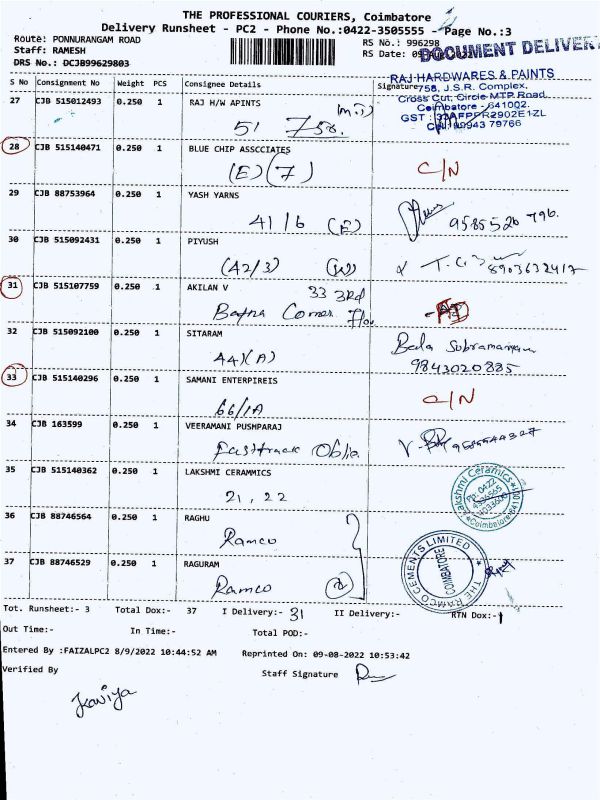 THE PROFESSIONAL COURIERS, Coimbatore
Delivery Runsheet - PC2 - Phone No.:0422-3505555 - Page No.:3
Route: PONNURANGAM ROAD
RS No.: 996298
Staff: RAMESH
RS Date: 09
DOCUMENT DELIVER
DRS No.: DCJB99629803
S No Consignment No Weight PCS Consignee Details Signature
RAJ HARDWARES & PAINTS
756, J.S.R. Complex,
Cross Cut, Circle MTP Road,
Coimbatore - 641002.
GST : 33AFPPR2902E1ZL
Cell : 90943 79766
27 CJB 515012493 0.250 1 RAJ H/W APINTS
51 756.
28 CJB 515140471 0.250 1 BLUE CHIP ASSCCIATES
(E) (7) C/N
29 CJB 88753964 0.250 1 YASH YARNS
41/6 (E) 9585526 796.
30 CJB 515092431 0.250 1 PIYUSH
(42/3) (W) 8903632417
31 CJB 515107759 0.250 1 AKILAN V
33 3rd
Bafna Corner Floo
32 CJB 515092100 0.250 1 SITARAM
44)(A) Bala Subramaniam
9843020885
33 CJB 515140296 0.250 1 SAMANI ENTERPIREIS
66/1A C/N
34 CJB 163599 0.250 1 VEERAMANI PUSHPARAJ
Fasttrack
35 CJB 515140362 0.250 1 LAKSHMI CERAMMICS
21, 22
Lakshmi Ceramics
Ph: 0422
Coimbatore
36 CJB 88746564 0.250 1 RAGHU
Ramco
37 CJB 88746529 0.250 1 RAGURAM
Ramco (2)
THE RAMCO CEMENTS LIMITED
COIMBATORE
Tot. Runsheet:- 3 Total Dox:- 37 I Delivery:- 31 II Delivery:- RTN Dox:-
Out Time:- In Time:- Total POD:-
Entered By :FAIZALPC2 8/9/2022 10:44:52 AM Reprinted On: 09-08-2022 10:53:42
Verified By Staff Signature
Kaviya